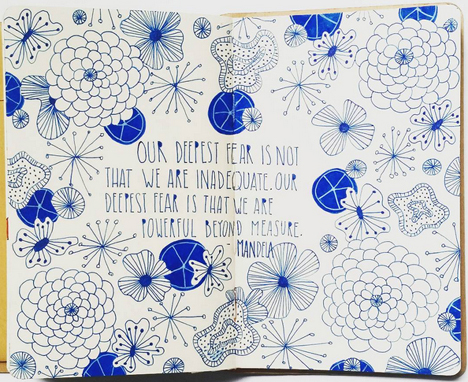 OUR DEEPEST FEAR IS NOT
THAT WE ARE INADEQUATE. OUR
DEEPEST FEAR IS THAT WE ARE
POWERFUL BEYOND MEASURE.
MANDELA